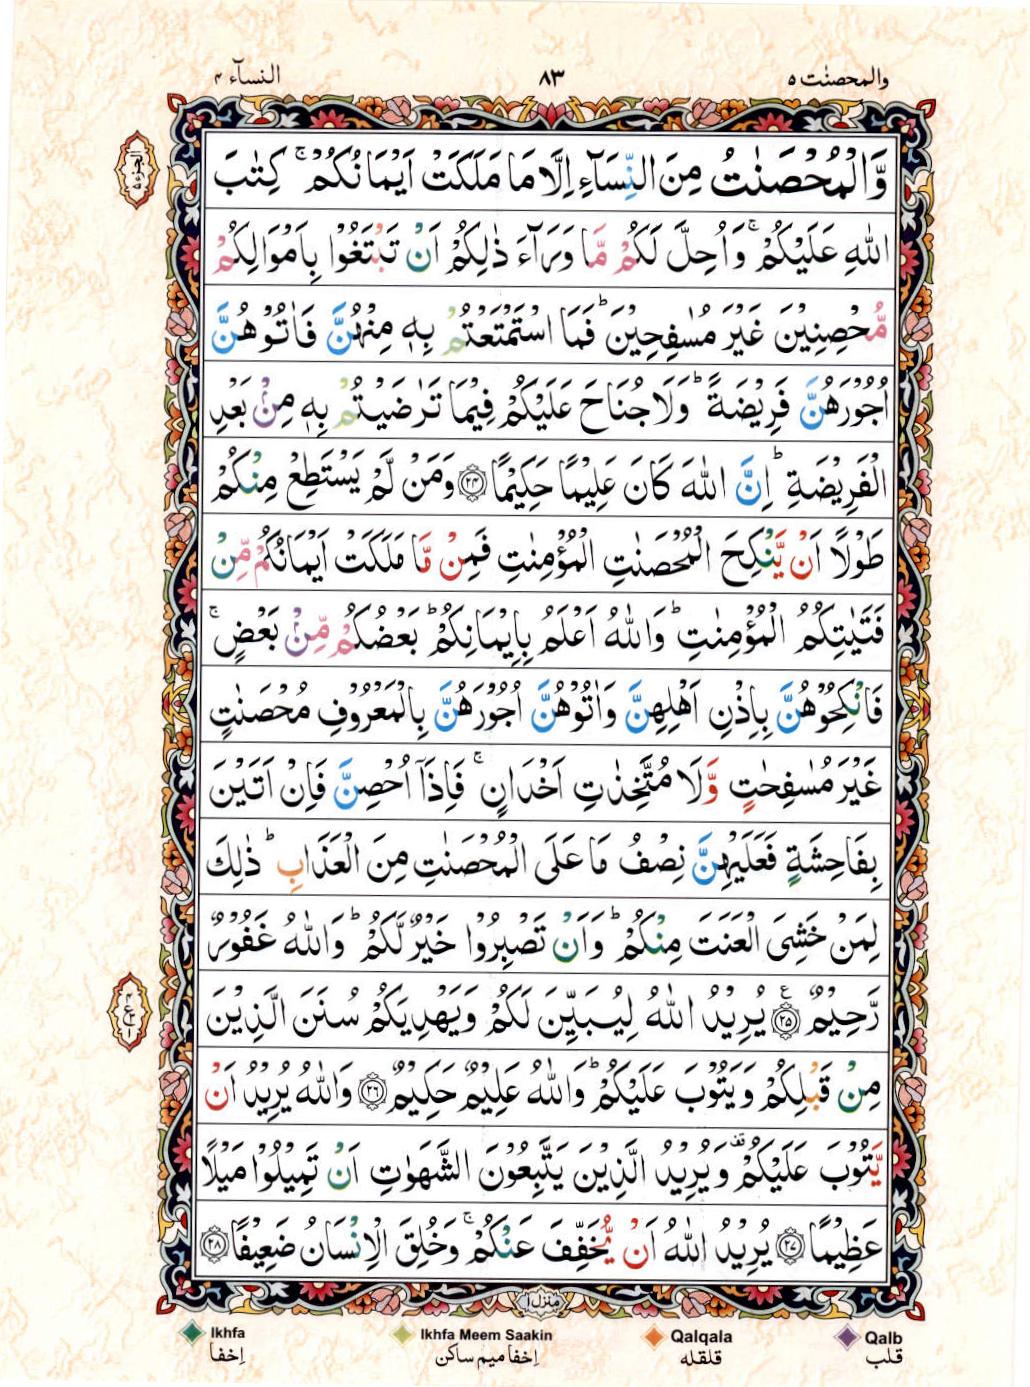 والمحصنٰت ۵
۸۳
النسآء ۴
الجزء ۵
وَّالْمُحْصَنٰتُ مِنَ النِّسَآءِ اِلَّا مَا مَلَكَتْ اَيْمَانُكُمْ ۚ كِتٰبَ
اللّٰهِ عَلَيْكُمْ ۚ وَاُحِلَّ لَكُمْ مَّا وَرَآءَ ذٰلِكُمْ اَنْ تَبْتَغُوْا بِاَمْوَالِكُمْ
مُّحْصِنِيْنَ غَيْرَ مُسٰفِحِيْنَ ؕ فَمَا اسْتَمْتَعْتُمْ بِهٖ مِنْهُنَّ فَاٰتُوْهُنَّ
اُجُوْرَهُنَّ فَرِيْضَةً ؕ وَلَا جُنَاحَ عَلَيْكُمْ فِيْمَا تَرٰضَيْتُمْ بِهٖ مِنْۢ بَعْدِ
الْفَرِيْضَةِ ؕ اِنَّ اللّٰهَ كَانَ عَلِيْمًا حَكِيْمًا ﴿۲۴﴾ وَمَنْ لَّمْ يَسْتَطِعْ مِنْكُمْ
طَوْلًا اَنْ يَّنْكِحَ الْمُحْصَنٰتِ الْمُؤْمِنٰتِ فَمِنْ مَّا مَلَكَتْ اَيْمَانُكُمْ مِّنْ
فَتَيٰتِكُمُ الْمُؤْمِنٰتِ ؕ وَاللّٰهُ اَعْلَمُ بِاِيْمَانِكُمْ ؕ بَعْضُكُمْ مِّنْۢ بَعْضٍ ۚ
فَانْكِحُوْهُنَّ بِاِذْنِ اَهْلِهِنَّ وَاٰتُوْهُنَّ اُجُوْرَهُنَّ بِالْمَعْرُوْفِ مُحْصَنٰتٍ
غَيْرَ مُسٰفِحٰتٍ وَّلَا مُتَّخِذٰتِ اَخْدَانٍ ۚ فَاِذَآ اُحْصِنَّ فَاِنْ اَتَيْنَ
بِفَاحِشَةٍ فَعَلَيْهِنَّ نِصْفُ مَا عَلَى الْمُحْصَنٰتِ مِنَ الْعَذَابِ ؕ ذٰلِكَ
لِمَنْ خَشِىَ الْعَنَتَ مِنْكُمْ ؕ وَاَنْ تَصْبِرُوْا خَيْرٌ لَّكُمْ ؕ وَاللّٰهُ غَفُوْرٌ
رَّحِيْمٌ ﴿۲۵﴾ يُرِيْدُ اللّٰهُ لِيُبَيِّنَ لَكُمْ وَيَهْدِيَكُمْ سُنَنَ الَّذِيْنَ
مِنْ قَبْلِكُمْ وَيَتُوْبَ عَلَيْكُمْ ؕ وَاللّٰهُ عَلِيْمٌ حَكِيْمٌ ﴿۲۶﴾ وَاللّٰهُ يُرِيْدُ اَنْ
يَّتُوْبَ عَلَيْكُمْ ۟ وَيُرِيْدُ الَّذِيْنَ يَتَّبِعُوْنَ الشَّهَوٰتِ اَنْ تَمِيْلُوْا مَيْلًا
عَظِيْمًا ﴿۲۷﴾ يُرِيْدُ اللّٰهُ اَنْ يُّخَفِّفَ عَنْكُمْ ۚ وَخُلِقَ الْاِنْسَانُ ضَعِيْفًا ﴿۲۸﴾
منزل ۱
Ikhfa
اِخفا
Ikhfa Meem Saakin
اِخفا میم ساکن
Qalqala
قلقله
Qalb
قلب